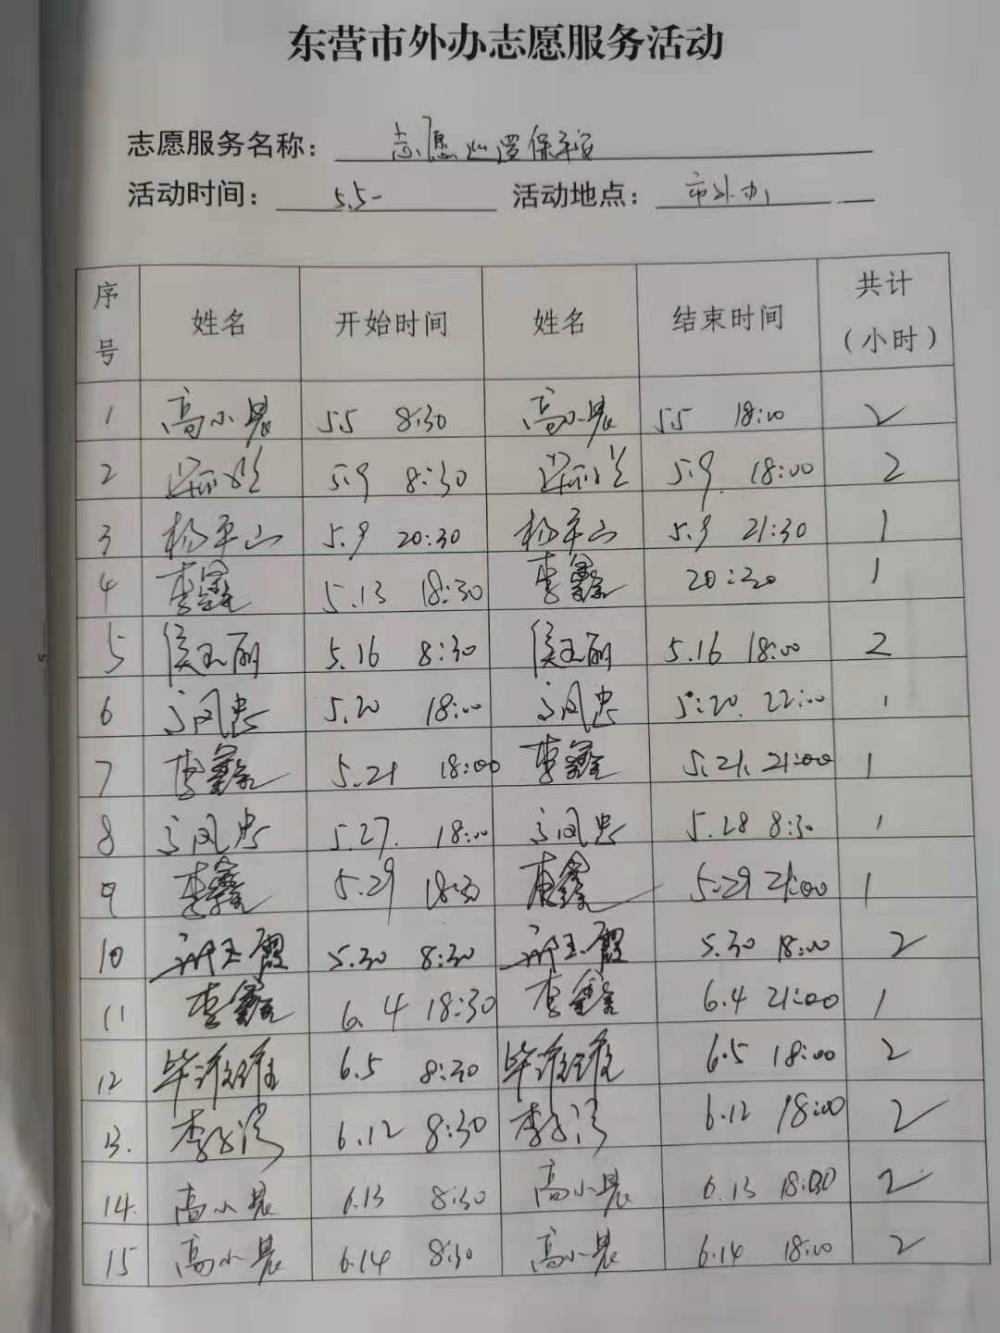 东营市外办志愿服务活动
志愿服务名称： 志愿巡逻保平安
活动时间： 5.5- 活动地点： 市外办
序号 姓名 开始时间 姓名 结束时间 共计（小时）
1 高小晨 5.5 8:30 高小晨 5.5 18:00 2
2 5.9 8:30 5.9. 18:00 2
3 杨平山 5.9 20:30 杨平山 5.9 21:30 1
4 李鑫 5.13 18:30 李鑫 20:30 1
5 侯玉丽 5.16 8:30 侯玉丽 5.16 18:00 2
6 5.20 18:00 5.20. 22:00 1
7 李鑫 5.21 18:00 李鑫 5.21. 21:00 1
8 5.27. 18:00 5.28 8:30 1
9 李鑫 5.29 18:30 李鑫 5.29 21:00 1
10 玉霞 5.30 8:30 玉霞 5.30 18:00 2
11 李鑫 6.4 18:30 李鑫 6.4 21:00 1
12 6.5 8:30 6.5 18:00 2
13. 6.12 8:30 6.12 18:00 2
14. 高小晨 6.13 8:30 高小晨 6.13 18:00 2
15 高小晨 6.14 8:30 高小晨 6.14 18:00 2